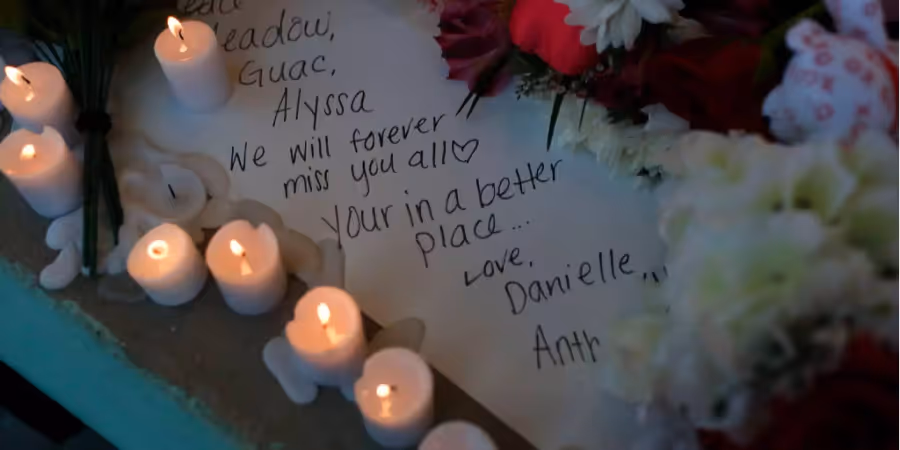 eadow,
Guac,
Alyssa
We will forever
miss you all♡
your in a better
place...
Love,
Danielle,
Anth